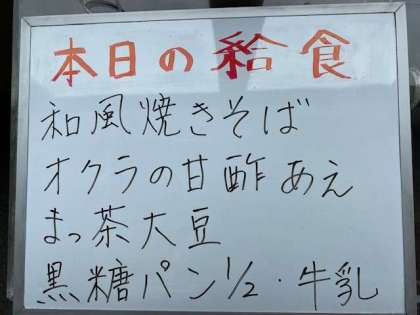 本日の給食
和風焼きそば
オクラの甘酢あえ
まっ茶大豆
黒糖パン1/2・牛乳